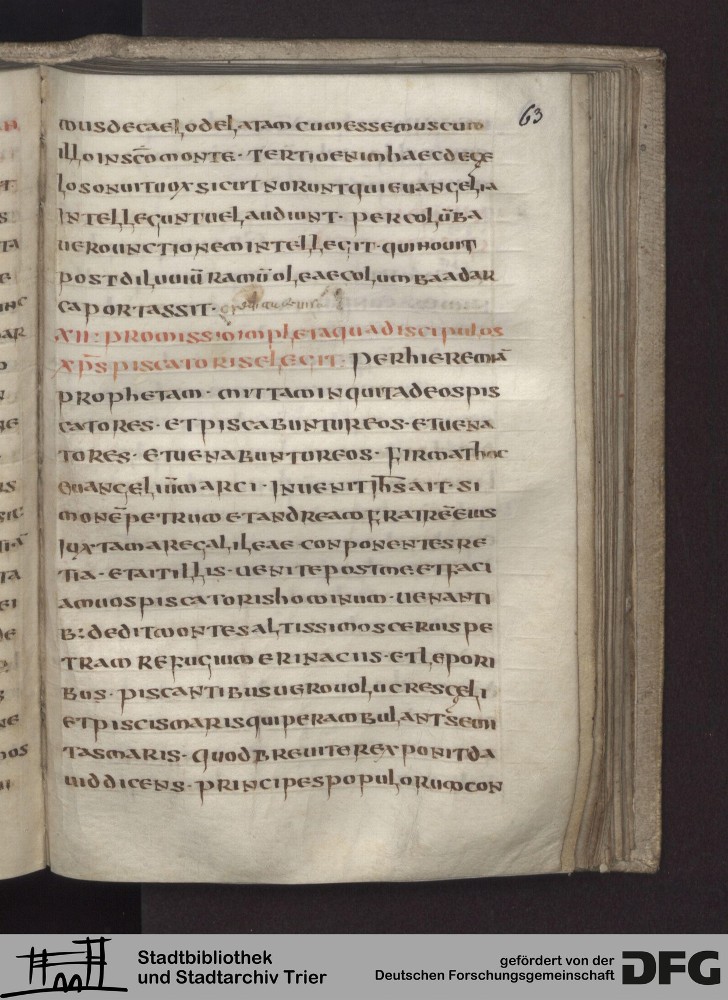 63
musdecaelodelatamcumessemuscum
illoinsc̄omonte· tertioenimhaecdece
losonuituoxsicutnoruntquieuangelia
intelleguntuelaudiunt· percolūba
uerounctionemintellegit·quinouit
postdiluuiū ramūoleaecolumbaadar
caportassit·
XII: promissioimpletaquadiscipulos
xp̄s piscatoriselegit: perhieremiā
prophetam· mittaminquitadeospis
catores· etpiscabuntureos· etuena
tores· etuenabuntureos· firmathoc
euangeliūmarci· inuenitih̄sait·si
monēpetrum etandreamfratrēeius
iuxtamaregalileae conponentesre
tia· etaitillis· uenitepostmeetfaci
amuospiscatorishominum· uenanti
b: deditmontesaltissimosceruispe
tram refugiumerinaciis·etlepori
bus· piscantibusuerouolucresceli
etpiscismarisquiperambulantsemi
tasmaris· quodbreuiterexponitda
uiddicens· principespopulorumcon
Stadtbibliothek
und Stadtarchiv Trier
gefördert von der
Deutschen Forschungsgemeinschaft
DFG